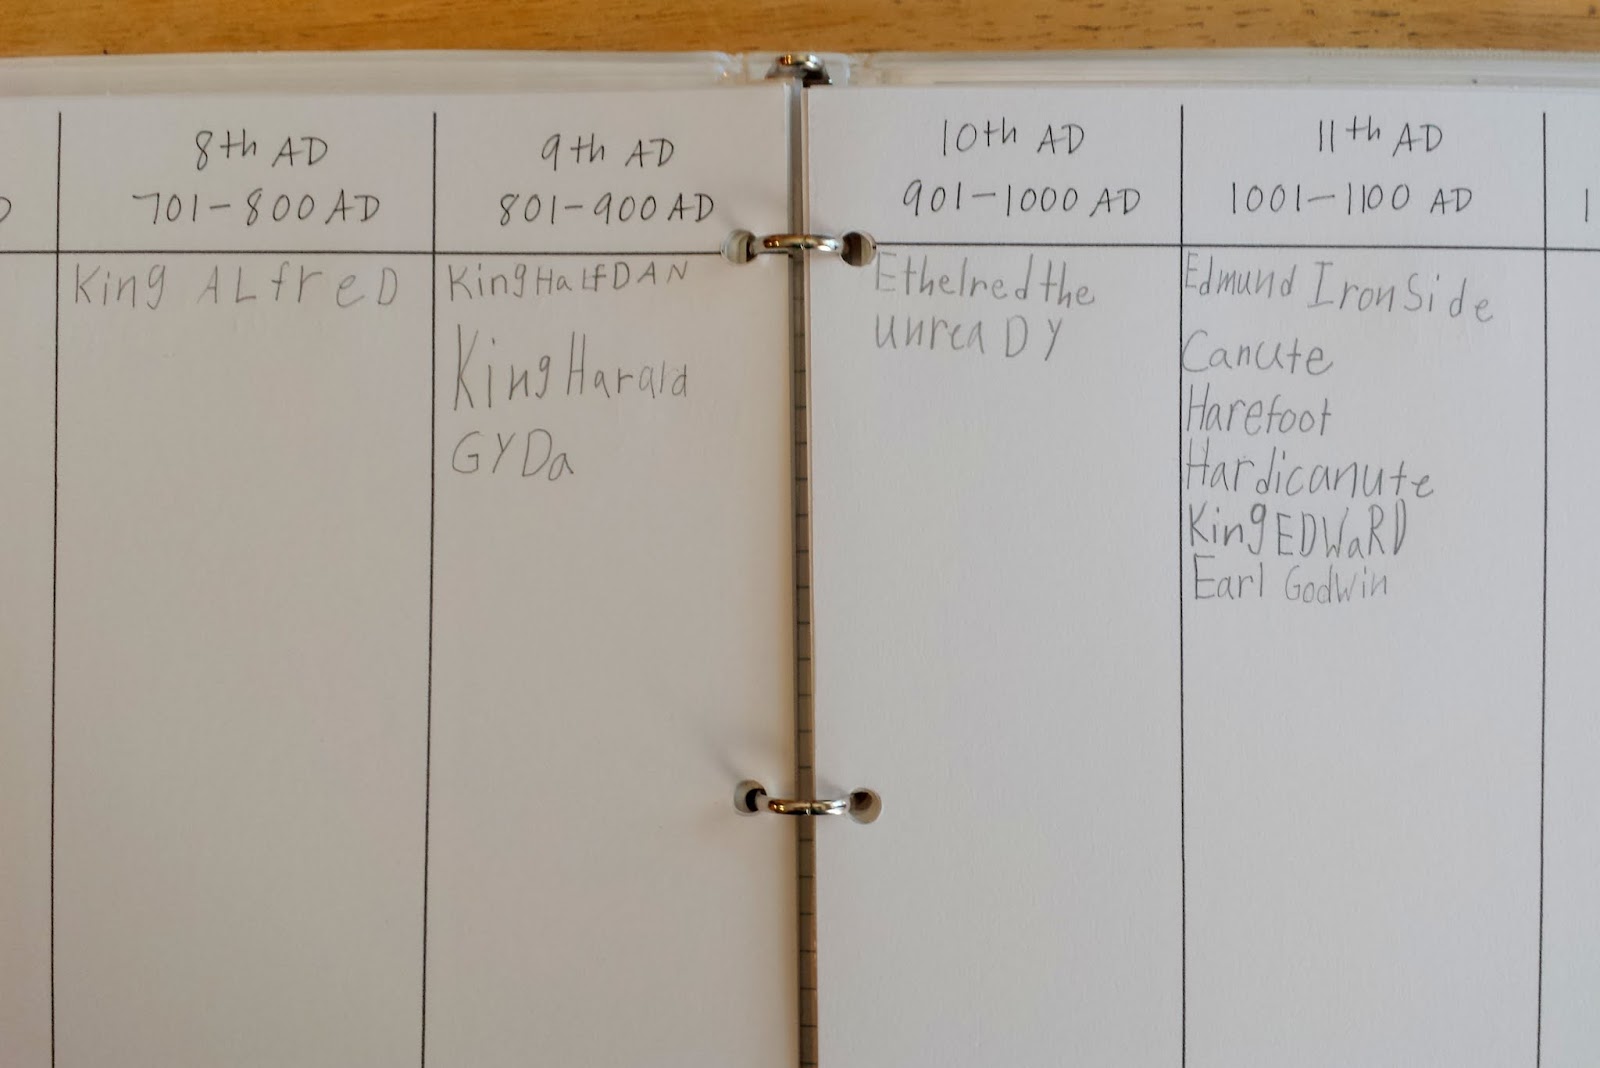 8th AD
701-800 AD
King ALfreD
9th AD
801-900 AD
King HaLfDAN
King Harald
GYDa
10th AD
901-1000 AD
Ethelred the
unreaDY
11th AD
1001-1100 AD
Edmund IronSide
Canute
Harefoot
Hardicanute
King EDWaRD
Earl Godwin